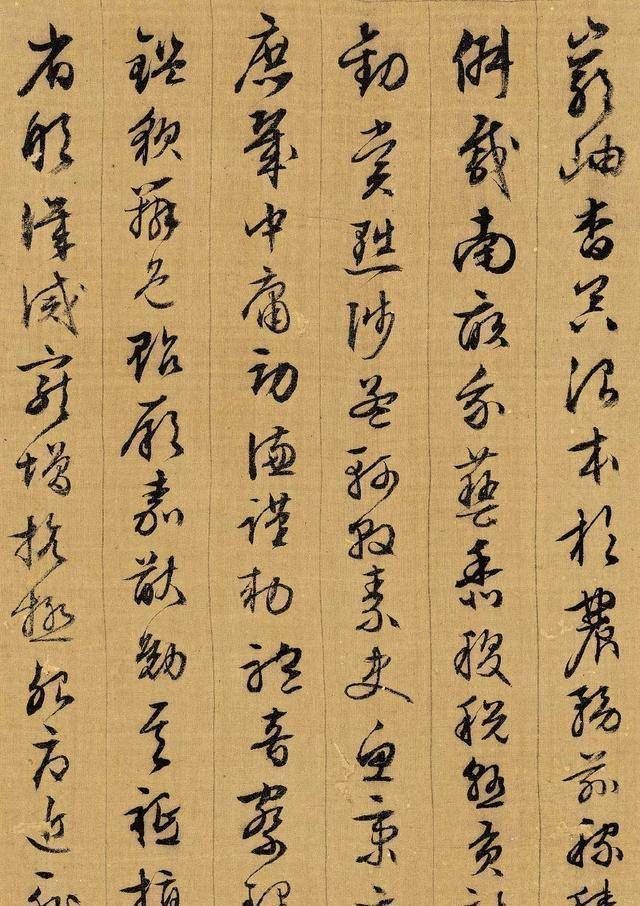 巖岫杳冥治本於農務茲稼穡
俶載南畝我藝黍稷稅熟貢新
勸賞黜陟孟軻敦素史魚秉直
庶幾中庸勞謙謹勅聆音察理
鑑貌辨色貽厥嘉猷勉其祗植
省躬譏誡寵增抗極殆辱近恥